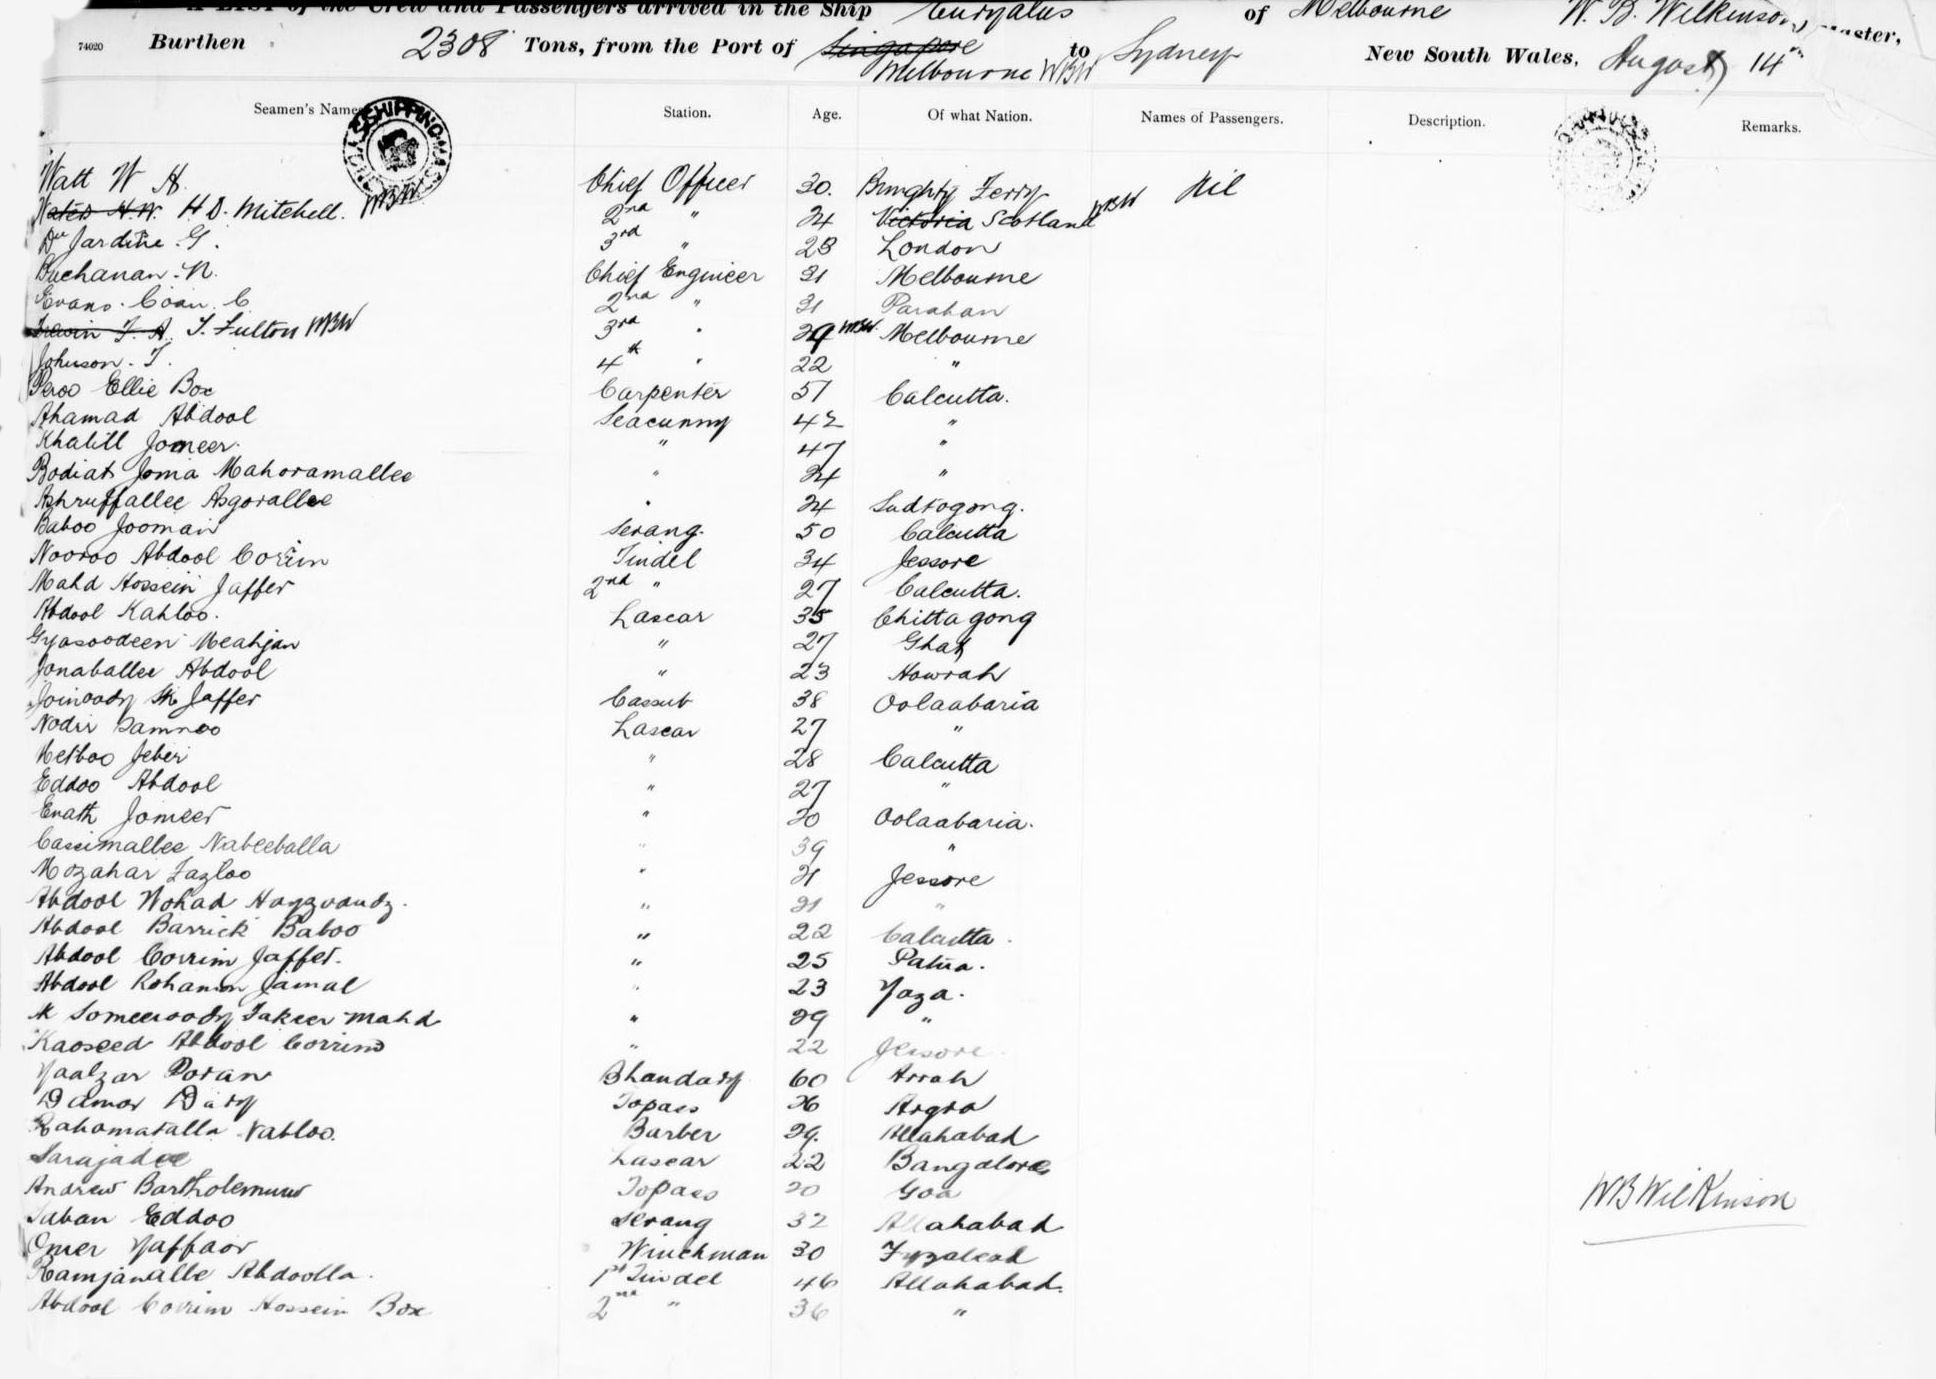 A LIST of the Crew and Passengers arrived in the Ship Euryalus of Melbourne W. B. Wilkinson, Master,
74020 Burthen 2308 Tons, from the Port of Singapore Melbourne WBW to Sydney New South Wales, August 14th
Seamen's Names Station. Age. Of what Nation. Names of Passengers. Description. Remarks.
Watt W A. Chief Officer 30. Broughty Ferry Nil
H D. Mitchell. WBW 2nd " 24 Victoria Scotland WBW
Du Jardine. G. 3rd " 23 London
Buchanan. N. Chief Engineer 31 Melbourne
Evans. Coan. C 2nd " 31 Parahan
Irwin F. A. T. Fulton WBW 3rd " 29 WBW Melbourne
Johnson. T. 4th " 22 "
Peroo Ellie Box Carpenter 57 Calcutta.
Ahamad Abdool Seacunny 42 "
Khalill Jomeer. " 47 "
Bodiat Joma Mahoramallee " 24 "
Ashruffallee Asgorallee " 24 Sudtogong.
Baboo Jooman Serang. 50 Calcutta
Nooroo Abdool Corim Tindel 34 Jessore
Mahd Hossein Jaffer 2nd " 27 Calcutta.
Abdool Kahloo. Lascar 35 Chittagong
Gyasoodeen Meahjan " 27
Jonaballee Abdool " 23 Howrah
Joinoody Sk Jaffer Cassub 38 Oolaabaria
Nodir Samnoo Lascar 27 "
Jeber " 28 Calcutta
Eddoo Abdool " 27 "
Enath Jomeer " 20 Oolaabaria.
Cassimallee Nabeeballa " 39 "
Mozahar Fazloo " 21 Jessore
Abdool Wohad " 21 "
Abdool Barrick Baboo " 22 Calcutta.
Abdool Corrim Jaffer. " 25 Patna.
Abdool Rohamon Jamal " 23 Yaza.
Someeroody Fakeer Mahd " 29 "
Kaoseed Abdool Corrim " 22 Jessore.
Yaalzar Poran Bhandary 60 Arrah
Damor Dary Topass 26 Argra
Rahamatalla Nabloo. Barber 29. Allahabad
Sarajadee Lascar 22 Bangalore
Andrew Bartholemuw Topass 20 Goa
Saban Eddoo Serang 32 Allahabad
Omer Yaffaor Winchman 30 Fyzabad
Ramjanalle Abdoolla. 1st Tindel 46 Allahabad.
Abdool Corrim Hossein Box 2nd " 36 "
WBWilkinson